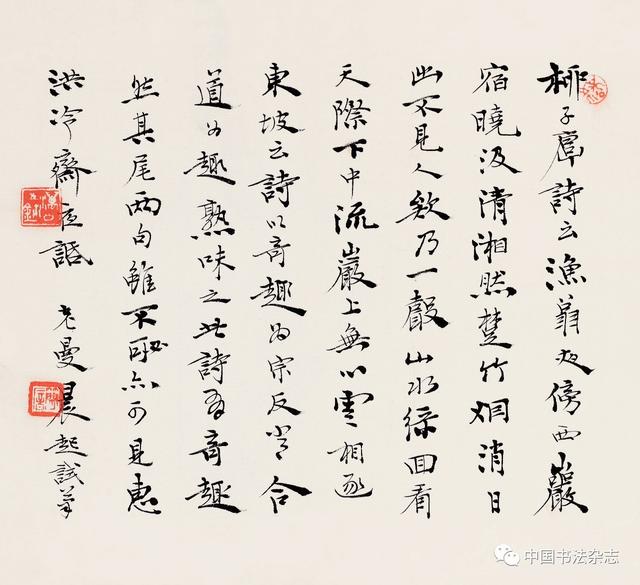 柳子厚詩云漁翁夜傍西巖
宿曉汲清湘燃楚竹烟消日
出不見人欸乃一聲山水綠回看
天際下中流巖上無心雲相逐
東坡云詩以奇趣為宗反常合
道為趣熟味之此詩有奇趣
然其尾兩句雖不必亦可見惠
洪冷齋夜話 老曼晨起試筆
中国书法杂志